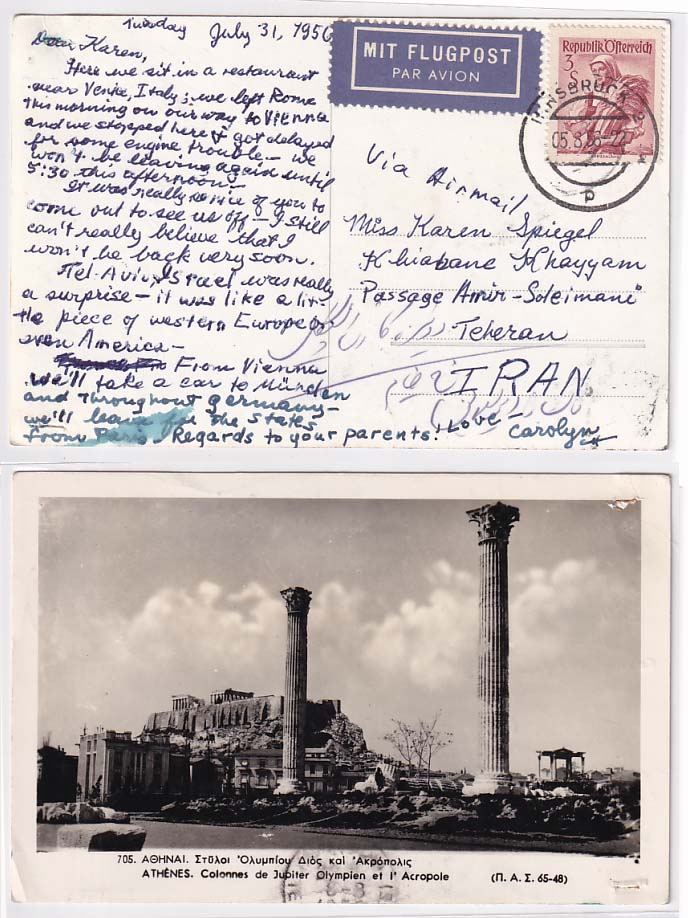 Tuesday July 31, 1956
Dear Karen,
Here we sit in a restaurant
near Venice, Italy; we left Rome
this morning on our way to Vienna
and we stopped here & got delayed
for some engine trouble - we
won't be leaving again until
5:30 this afternoon.
It was really so nice of you to
come out to see us off - I still
can't really believe that I
won't be back very soon.
Tel-Aviv, Israel was really
a surprise - it was like a lit-
tle piece of western Europe or
even America -
From Vienna
we'll take a car to München
and throughout germany -
we'll leave for the States
from Paris. Regards to your parents. Love
Carolyn
MIT FLUGPOST
PAR AVION
Republik Österreich
3 S
INNSBRUCK 2
05.8.56-22
p
Via Airmail
Miss Karen Spiegel
Khiabane Khayyam
Passage Amir-Soleimani
Teheran
IRAN
705. ΑΘΗΝΑΙ. Στῦλοι Ὀλυμπίου Διὸς καὶ Ἀκρόπολις
ATHÈNES. Colonnes de Jupiter Olympien et l' Acropole (Π. Α. Σ. 65-48)